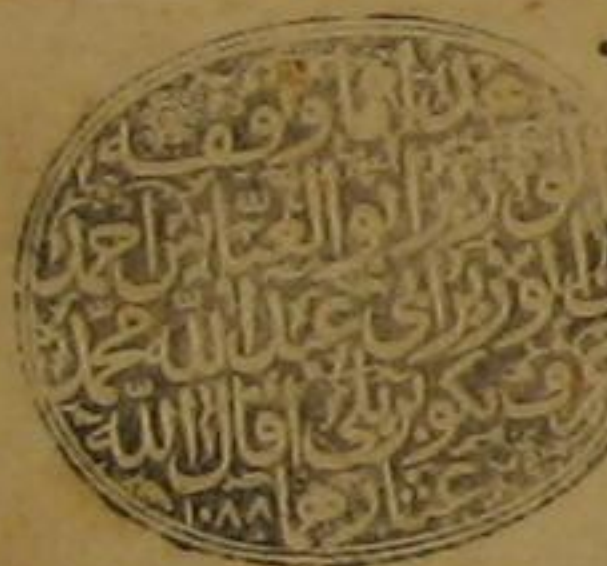 هذا ما وقفه
الوزير أبو العباس أحمد
ابن الوزير أبي عبد الله محمد
عرف بكوبريلي أقال الله
عثارهما
١٠٨٨